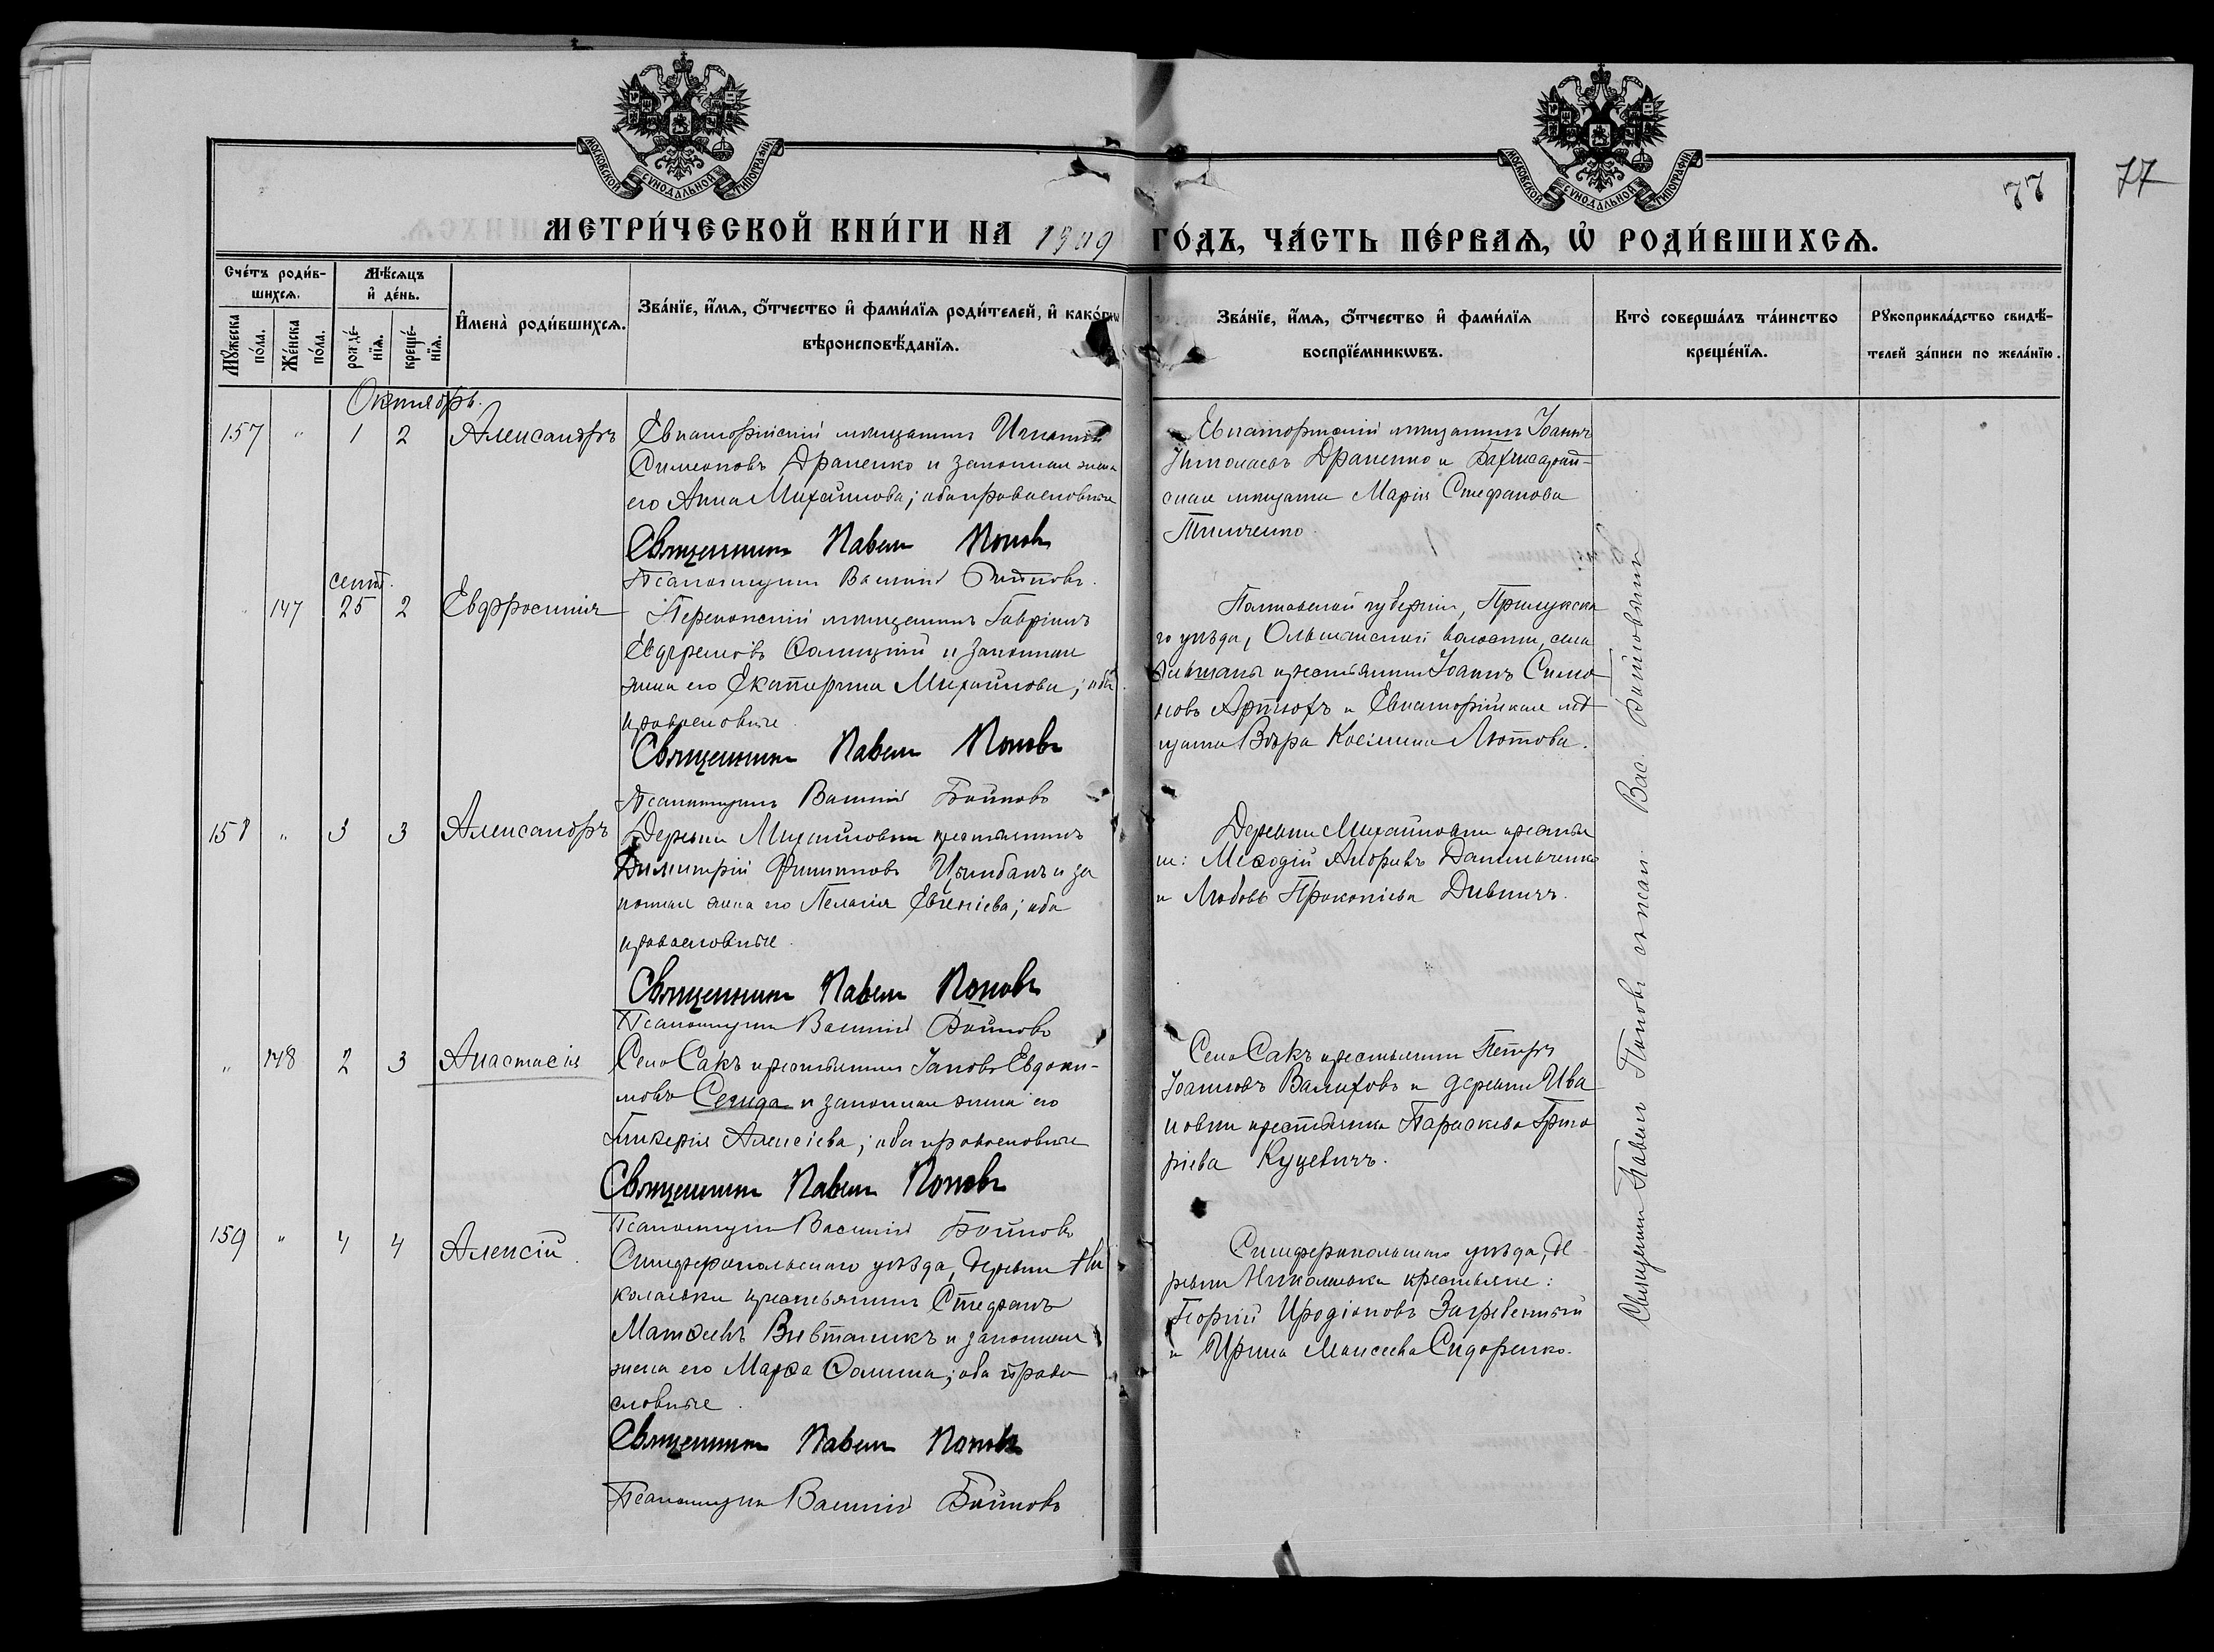 МОСКОВСКОЙ СѴНОДАЛЬНОЙ ТИПОГРАФІИ
МОСКОВСКОЙ СѴНОДАЛЬНОЙ ТИПОГРАФІИ
77
77
МЕТРИ́ЧЕСКОЙ КНИ́ГИ НА 1909 ГО́ДЪ, ЧА́СТЬ ПЕ́РВАѦ, Ѡ҆ РОДИ́ВШИХСѦ.
Сче́тъ роди́в-
шихсѧ.
Мѣ́сѧцъ
и҆ де́нь.
Мꙋ́жеска по́ла.
Же́нска по́ла.
рожде́-
нїѧ.
креще́-
нїѧ.
И҆мена̀ роди́вшихсѧ.
Зва́нїе, и҆́мѧ, ѻ҆́тчество и҆ фами́лїѧ роди́телей, и҆ како́гѡ
вѣроисповѣ́данїѧ.
Зва́нїе, и҆́мѧ, ѻ҆́тчество и҆ фами́лїѧ
воспрїе́мникѡвъ.
Кто̀ соверша́лъ та́инство
креще́нїѧ.
Рꙋкоприкла́дство свидѣ́-
телей за́писи по жела́нїю.
Октябрь.
157 " 1 2 Александръ
Евпаторійскій мѣщанинъ Игнатій
Симеоновъ Драненко и законная жена
его Анна Михайлова; оба православные
Священникъ Павелъ Поповъ
Псаломщикъ Василій Войновъ.
Евпаторійскій мѣщанинъ Іоаннъ
Николаевъ Драненко и Бахчисарай-
ская мѣщанка Марія Стефанова
Тимченко.
сент.
147 25 2 Евфросинія
Перекопскій мѣщанинъ Гавріилъ
Евфремовъ Солицкій и законная
жена его Екатерина Михайлова; оба
православные.
Священникъ Павелъ Поповъ
Псаломщикъ Василій Войновъ
Полтавской губерніи, Прилукска
го уѣзда, Ольшанской волости, села
Ольшаны крестьянинъ Іоаннъ Симо
новъ Артюхъ и Евпаторійская мѣ
щанка Вѣра Косьмина Лютова.
158 " 3 3 Александръ
Деревни Михайловки крестьянинъ
Димитрій Филипповъ Цымбалъ и за
конная жена его Пелагія Евгеніева; оба
православные.
Священникъ Павелъ Поповъ
Псаломщикъ Василій Войновъ
Деревни Михайловки крестья
не: Меѳодій Андреевъ Данильченко
и Любовь Прокопіева Дивничъ.
" 148 2 3 Анастасія
Село Сакъ крестьянинъ Іаковъ Евдоки-
мовъ Сегида и законная жена его
Гликерія Алексіева; оба православные
Священникъ Павелъ Поповъ
Псаломщикъ Василій Войновъ
Село Сакъ крестьянинъ Петръ
Іоанновъ Валиховъ и деревни Ива
новки крестьянка Параскева Григо
ріева Куцевичъ.
159 " 4 4 Алексій.
Симферопольскаго уѣзда, деревни Ни
колаевки крестьянинъ Стефанъ
Матѳеевъ Вивталикъ и законная
жена его Марѳа Сомина; оба право
славные.
Священникъ Павелъ Поповъ
Псаломщикъ Василій Войновъ
Симферопольскаго уѣзда, де
ревни Николаевки крестьяне:
Георгій Иродіоновъ Загребельный
и Ирина Моисеева Сидоренко.
Священникъ Павелъ Поповъ съ псал. Вас. Войновымъ